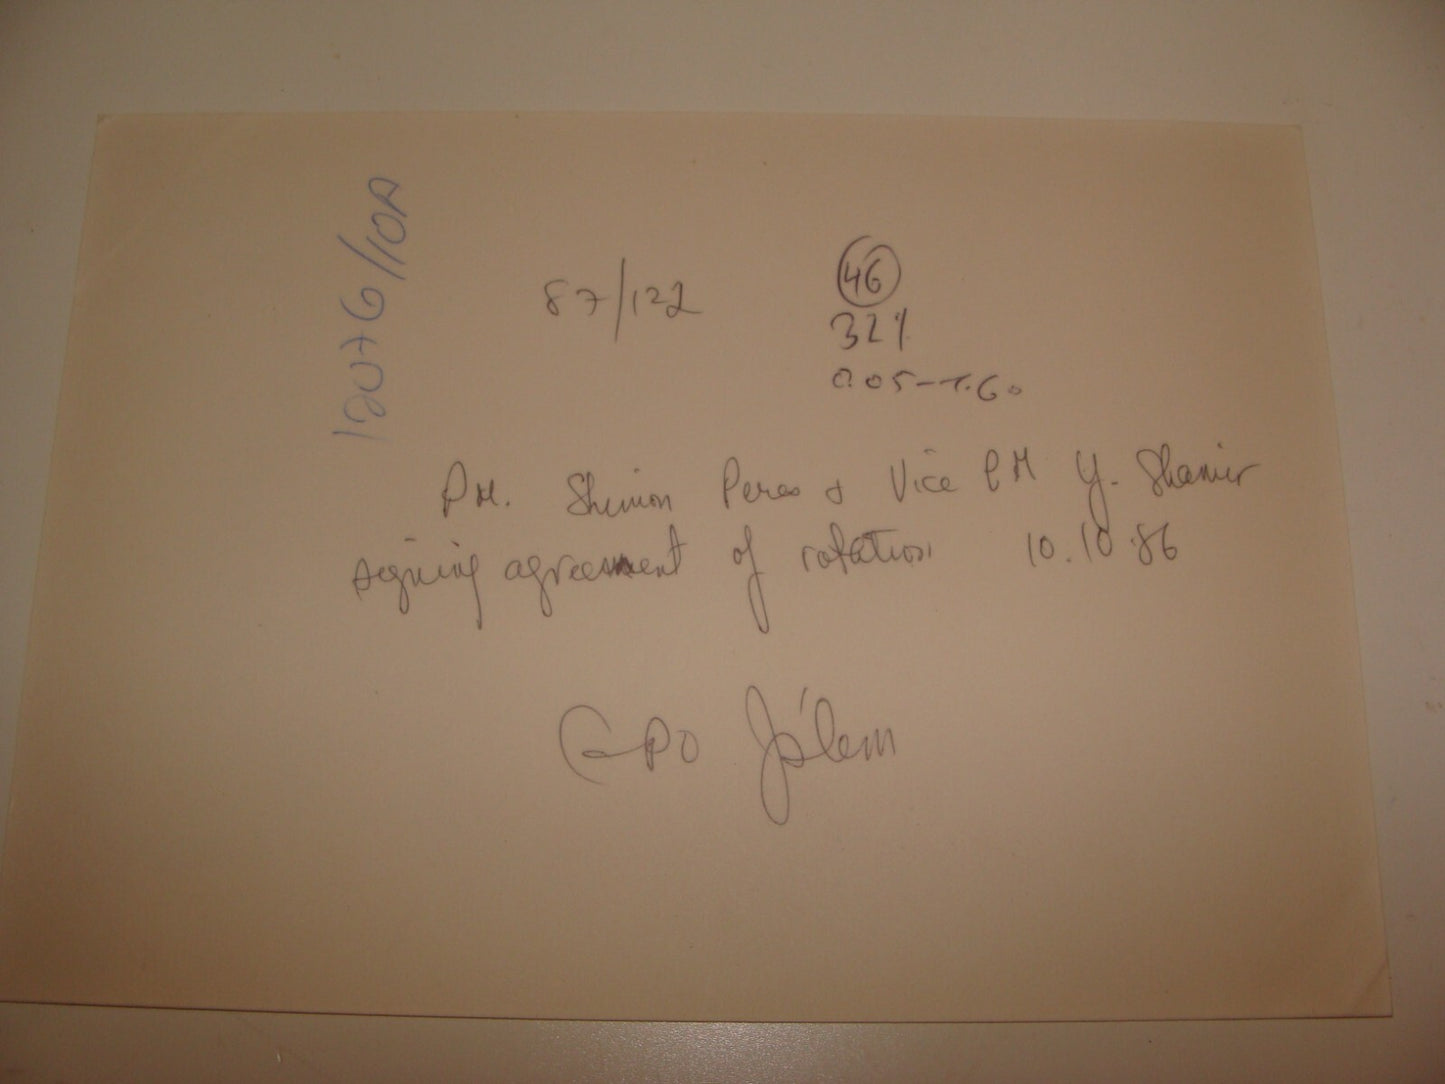 12076/10A
87/122
46
32%
0.05-
PM. Shimon Peres & Vice PM Y. Shamir
signing agreement of rotation 10.10.86
GPO J'lem